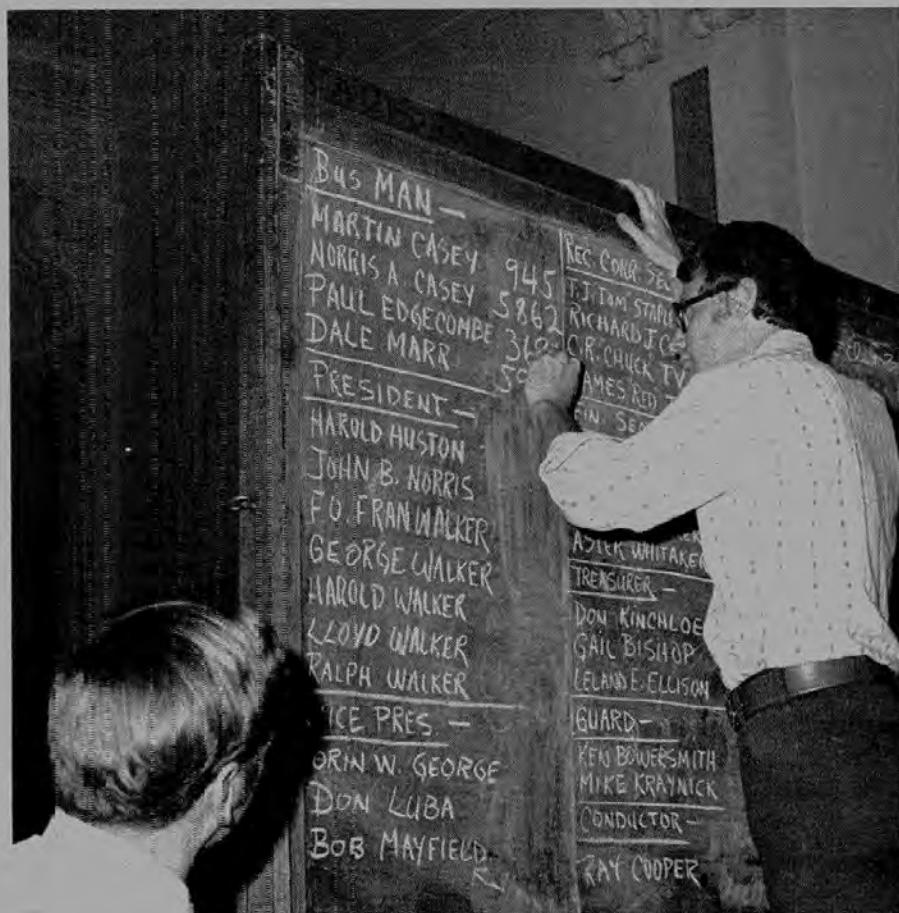 BUS MAN —
MARTIN CASEY 945
NORRIS A. CASEY 5862
PAUL EDGECOMBE
DALE MARR
PRESIDENT —
HAROLD HUSTON
JOHN B. NORRIS
F.O. FRAN WALKER
GEORGE WALKER
HAROLD WALKER
LLOYD WALKER
RALPH WALKER
VICE PRES. —
ORIN W. GEORGE
DON LUBA
BOB MAYFIELD
REC. CORR. SEC
T.J. TOM
RICHARD J.
C.R. CHUCK
JAMES RED
FIN. SEC
WHITAKER
TREASURER —
DON KINCHLOE
GAIL BISHOP
LELAND E. ELLISON
GUARD —
KEN BOWERSMITH
MIKE KRAYNICK
CONDUCTOR —
RAY COOPER